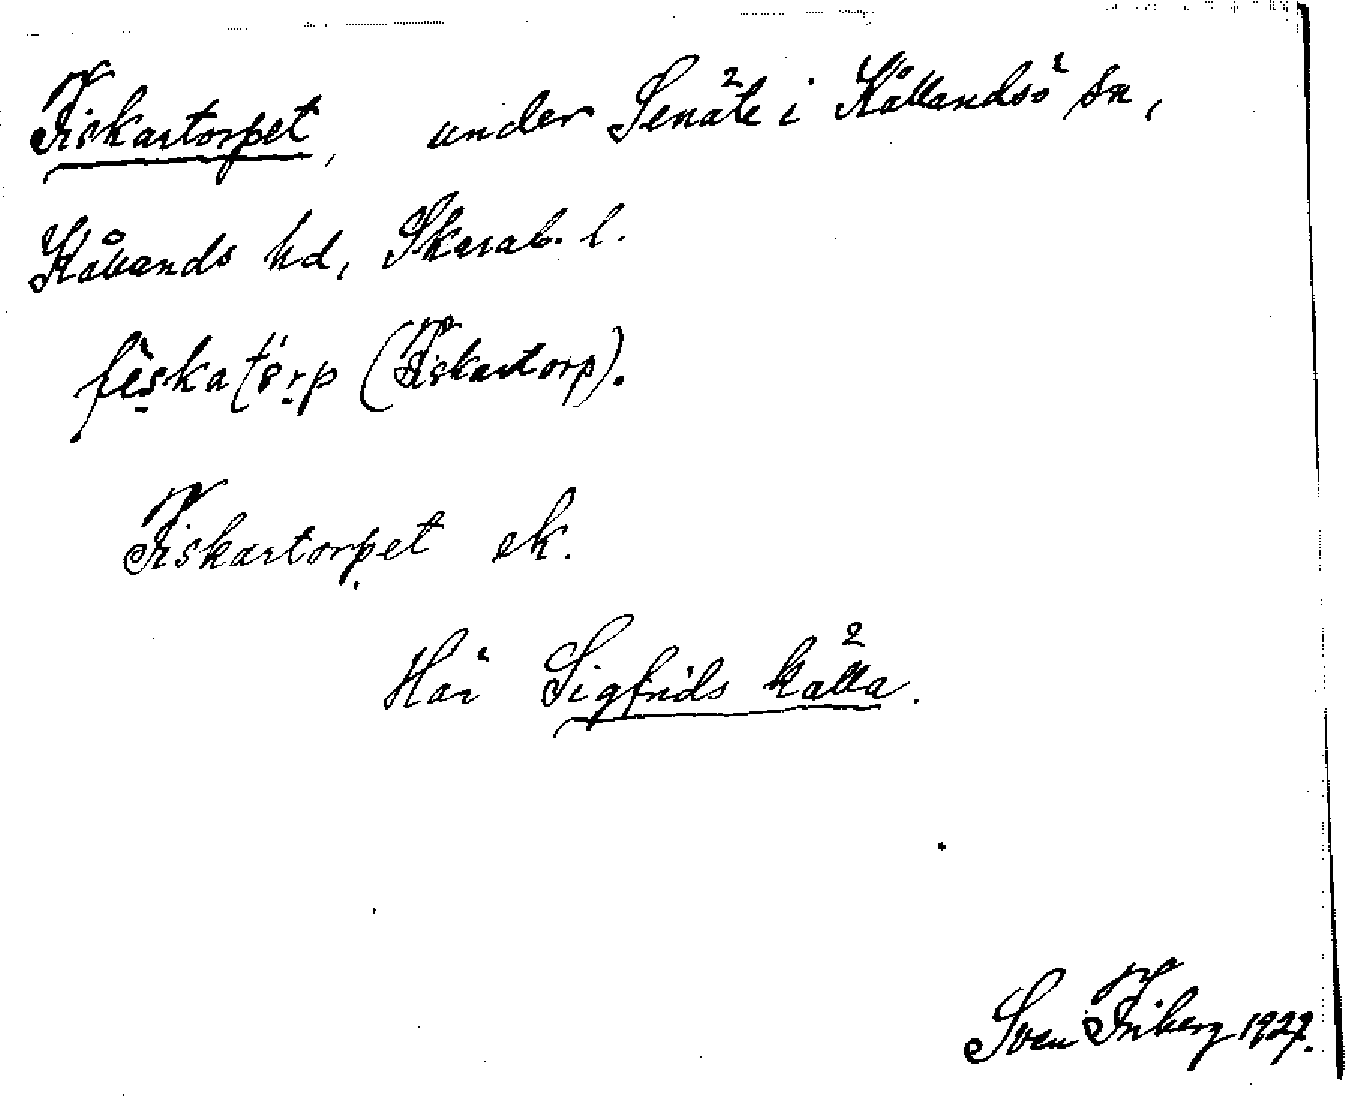 Fiskartorpet, under Senäte i Kållandsö sn,
Kållands hd, Skarab. l.
fiskatörp (Fiskartorp).
Fiskartorpet ek.
Här Sigfrids källa.
Sven Friberg 1927.